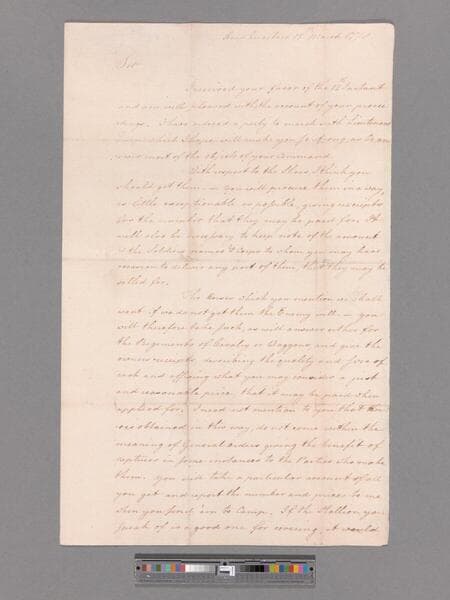 Head Quarters 15th March 1778
Sir
I received your favor of the 12th Instant
and am well pleased with the account of your procee
dings. I have ordered a party to march with Lieutenant
which I hope will make you so strong as to an
swer most of the objects of your command
With respect to the Shoes I think you
should get them — You will procure them in a way,
as little exceptionable as possible, giving receipts
for the number that they may be paid for. It
will also be necessary to keep note of the amount
& the Soldiers names & Corps to whom you may have
occasion to deliver any part of them, that they may be
settled for.
The Horses which you mention we shall
want if we do not get them the Enemy will — you
will therefore take such, as will answer either for
the Regiments of Cavalry or Waggons and give the
owners receipts, describing the quality and size of
each and affixing what you consider a just
and reasonable price that it may be paid when
applied for. I need not mention to you that
obtained in this way, do not come within the
meaning of General orders giving the benefit of
captures in some instances to the Parties who make
them. You will take a particular account of all
you get and report the number and prices to me
when you send 'em to Camp. If the Stallion you
speak of is a good one for covering it would